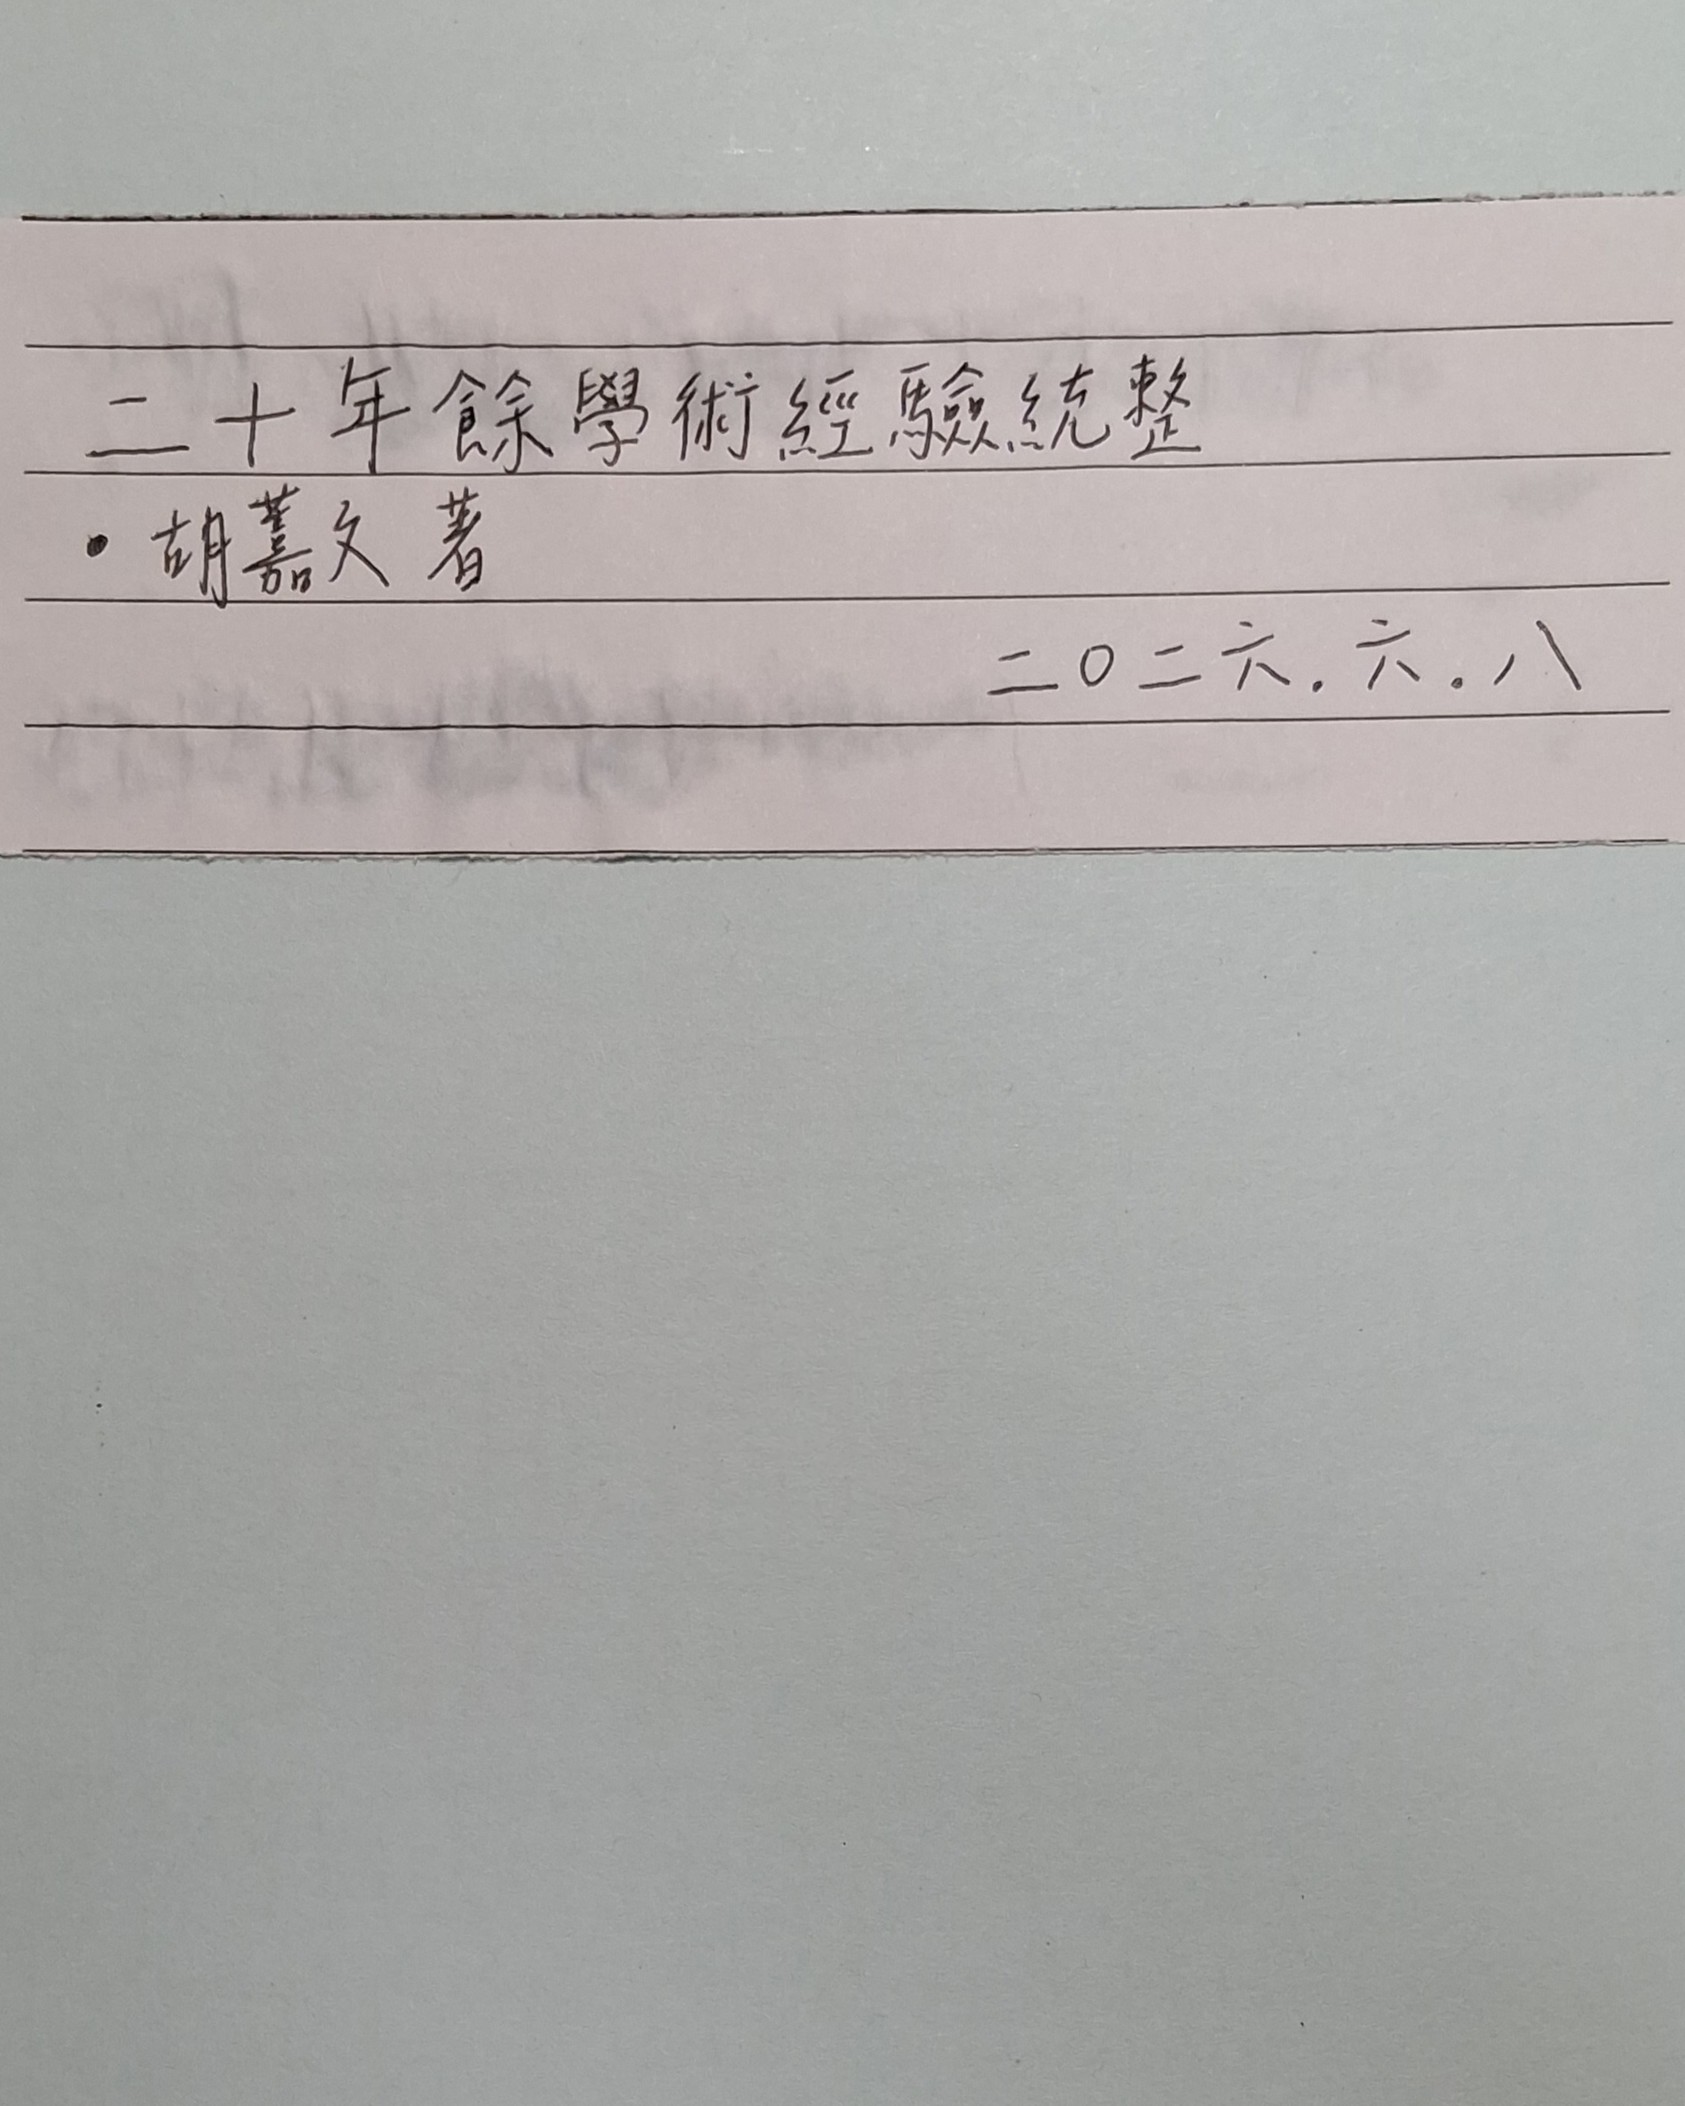 二十年餘學術經驗統整
•胡藄文 著
二〇二六.六.八